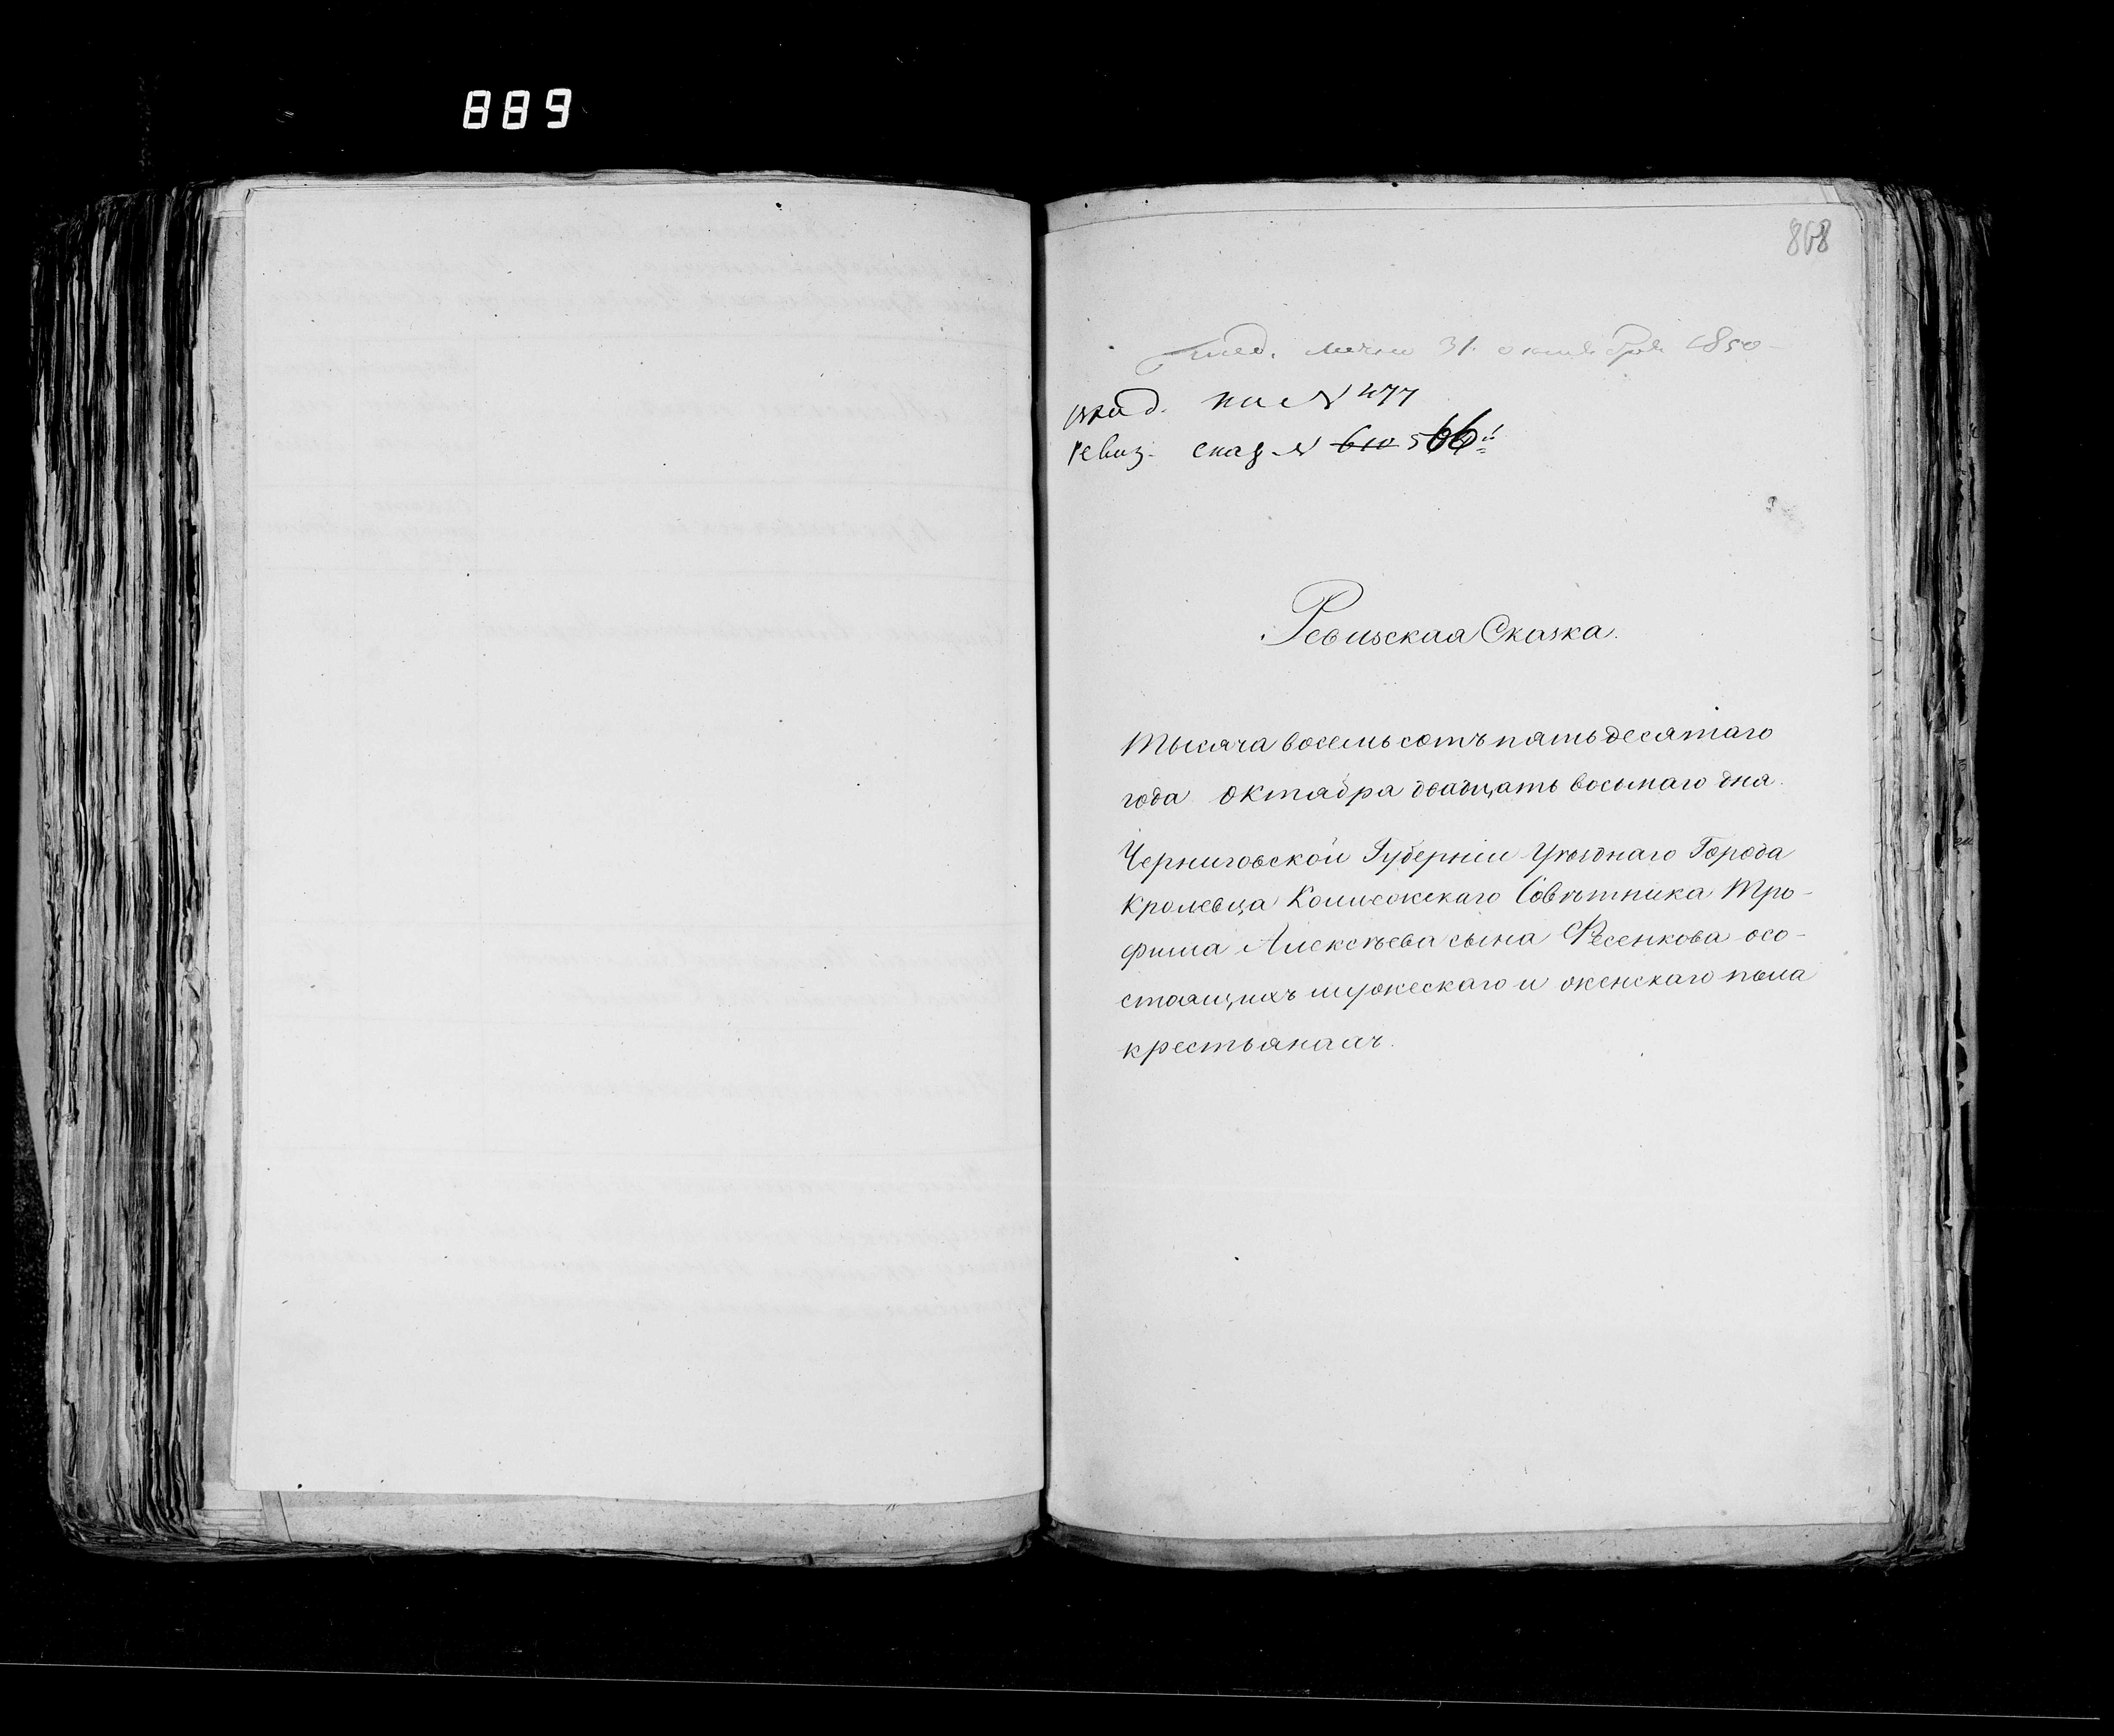 889
868
31. октября 1850
по № 477
ревиз. сказ. № 610 566
Ревизская Сказка.
Тысяча восемь сотъ пять десятаго
года октября двадцать восьмаго дня.
Черниговской Губерніи Уѣзднаго Города
Кролевца Колежскаго Совѣтника Тро-
фима Алексѣева сына Фесенкова осо-
стоящихъ мужескаго и женскаго пола
крестьянахъ.